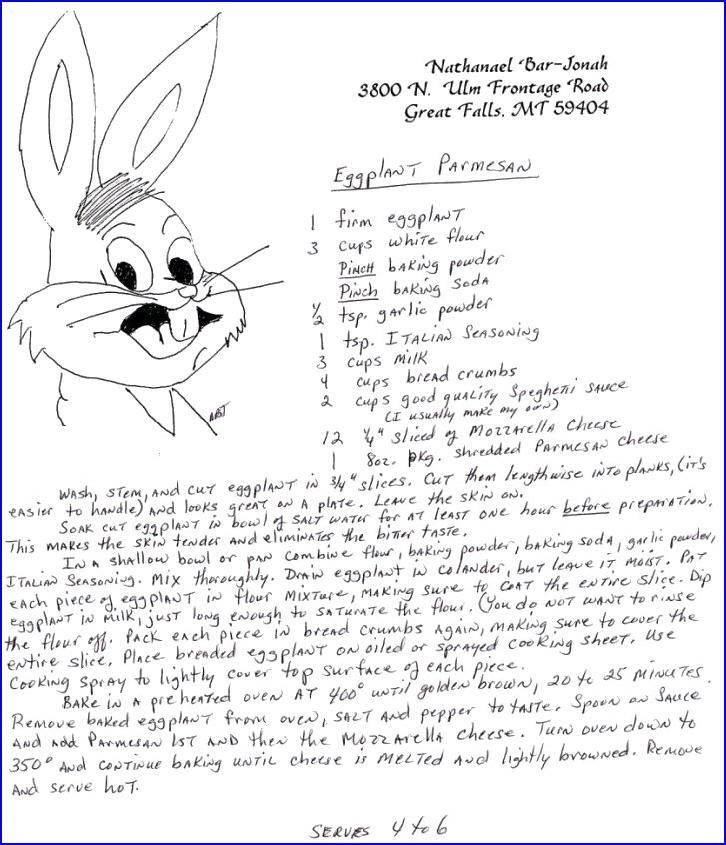 Nathanael Bar-Jonah
3800 N. Ulm Frontage Road
Great Falls, MT 59404
Eggplant Parmesan
1 firm eggplant
3 cups white flour
Pinch baking powder
Pinch baking soda
1/2 tsp. garlic powder
1 tsp. Italian Seasoning
3 cups milk
4 cups bread crumbs
2 cups good quality Speghetti sauce
(I usually make my own)
12 1/4" sliced of Mozzarella Cheese
1 8oz. pkg. shredded Parmesan cheese
Wash, stem, and cut eggplant in 3/4" slices. Cut them lengthwise into planks, (it's
easier to handle) and looks great on a plate. Leave the skin on.
Soak cut eggplant in bowl of salt water for at least one hour before preparation.
This makes the skin tender and eliminates the bitter taste.
In a shallow bowl or pan combine flour, baking powder, baking soda, garlic powder,
Italian Seasoning. Mix thoroughly. Drain eggplant in colander, but leave it moist. Pat
each piece of eggplant in flour mixture, making sure to coat the entire slice. Dip
eggplant in milk, just long enough to saturate the flour. (You do not want to rinse
the flour off. Pack each piece in bread crumbs again, making sure to cover the
entire slice. Place breaded eggplant on oiled or sprayed cooking sheet. Use
cooking spray to lightly cover top surface of each piece.
Bake in a preheated oven at 400° until golden brown, 20 to 25 minutes.
Remove baked eggplant from oven, salt and pepper to taste. Spoon on sauce
and add Parmesan 1st and then the Mozzarella cheese. Turn oven down to
350° and continue baking until cheese is melted and lightly browned. Remove
and serve hot.
Serves 4 to 6